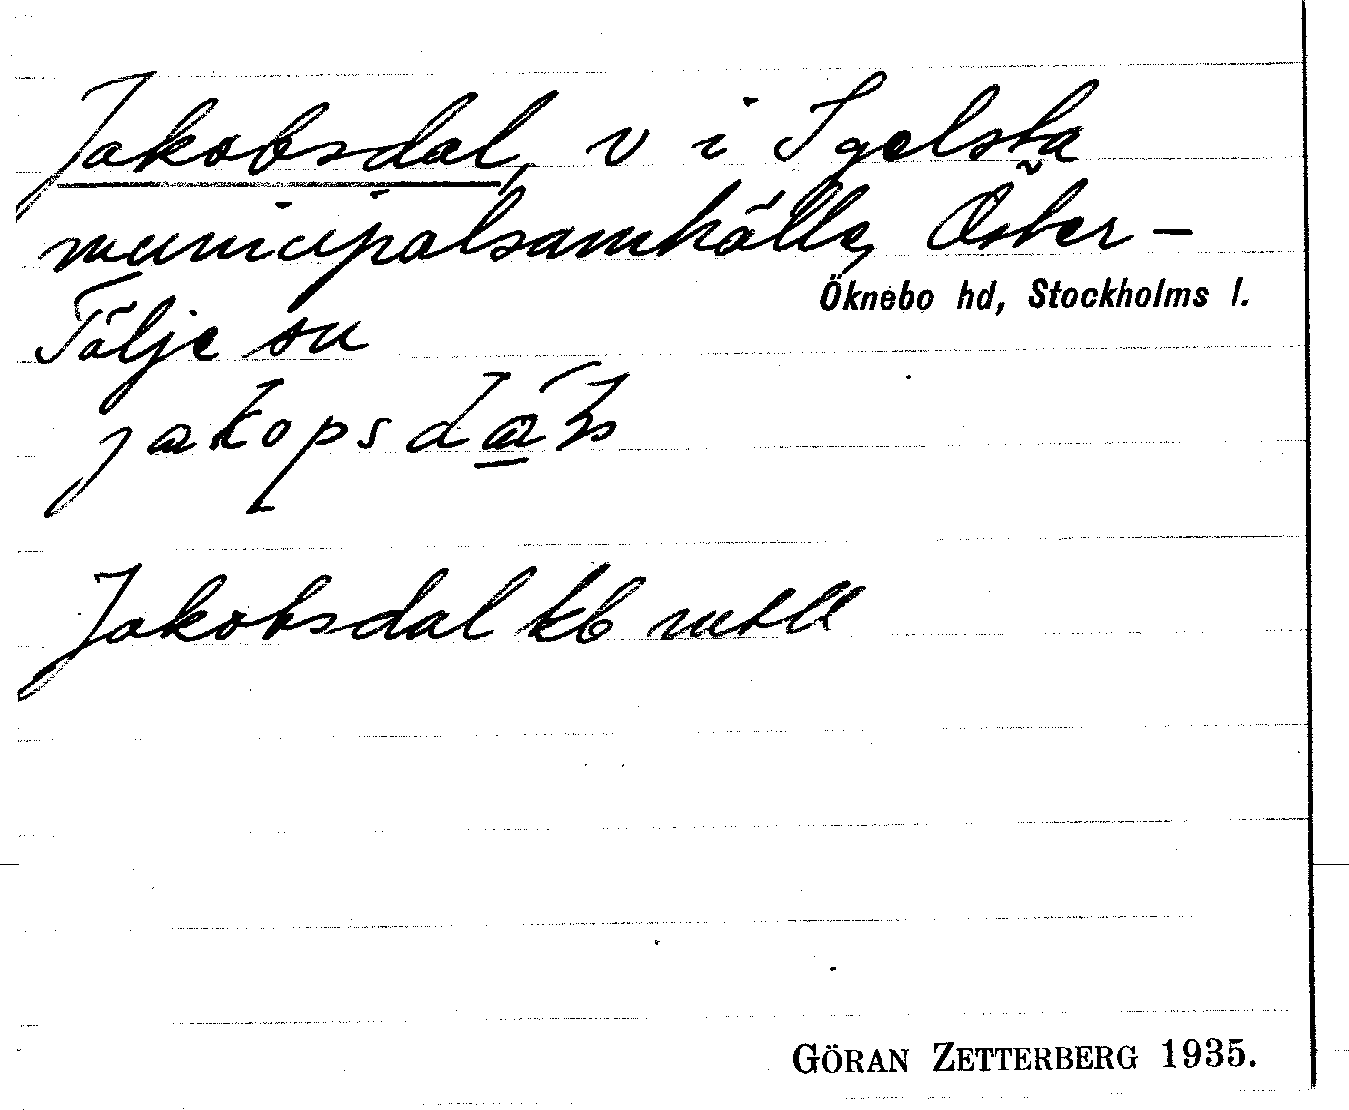 Jakobsdal, v i Igelsta
municipalsamhälle, Öster-
Öknebo hd, Stockholms l.
Tälje sn
jakopsdáɫ
Jakobsdal kb mtll
GÖRAN ZETTERBERG 1935.